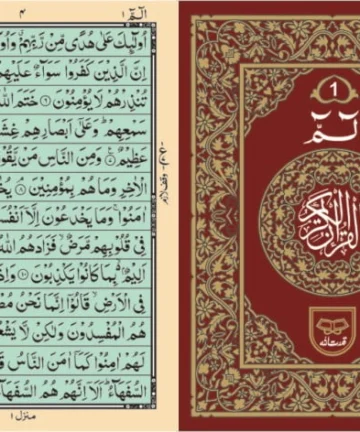 الٓمّٓ ۱
۴
اُولٰٓئِكَ عَلٰی هُدًی مِّنْ رَّبِّهِمْ وَاُو
اِنَّ الَّذِیْنَ كَفَرُوْا سَوَآءٌ عَلَیْهِمْ
تُنْذِرْهُمْ لَا یُؤْمِنُوْنَ ۶ خَتَمَ اللّٰهُ
سَمْعِهِمْ وَعَلٰۤی اَبْصَارِهِمْ غِشَ
عَظِیْمٌ ۷ وَمِنَ النَّاسِ مَنْ یَّقُوْ
الْاٰخِرِ وَمَا هُمْ بِمُؤْمِنِیْنَ ۸ یُخ
اٰمَنُوْا وَمَا یَخْدَعُوْنَ اِلَّاۤ اَنْفُسَ
فِیْ قُلُوْبِهِمْ مَّرَضٌ فَزَادَهُمُ اللّٰهُ
اَلِیْمٌ بِمَا كَانُوْا یَكْذِبُوْنَ ۱۰ وَاِذَ
فِی الْاَرْضِ قَالُوْۤا اِنَّمَا نَحْنُ مُصْ
هُمُ الْمُفْسِدُوْنَ وَلٰكِنْ لَّا یَشْعُ
لَهُمْ اٰمِنُوْا كَمَاۤ اٰمَنَ النَّاسُ قَ
السُّفَهَآءُ اَلَاۤ اِنَّهُمْ هُمُ السُّفَهَآ
منزل ۱
وقف لازم
1
الٓمّٓ
القرآن الکریم
قدرت اللہ